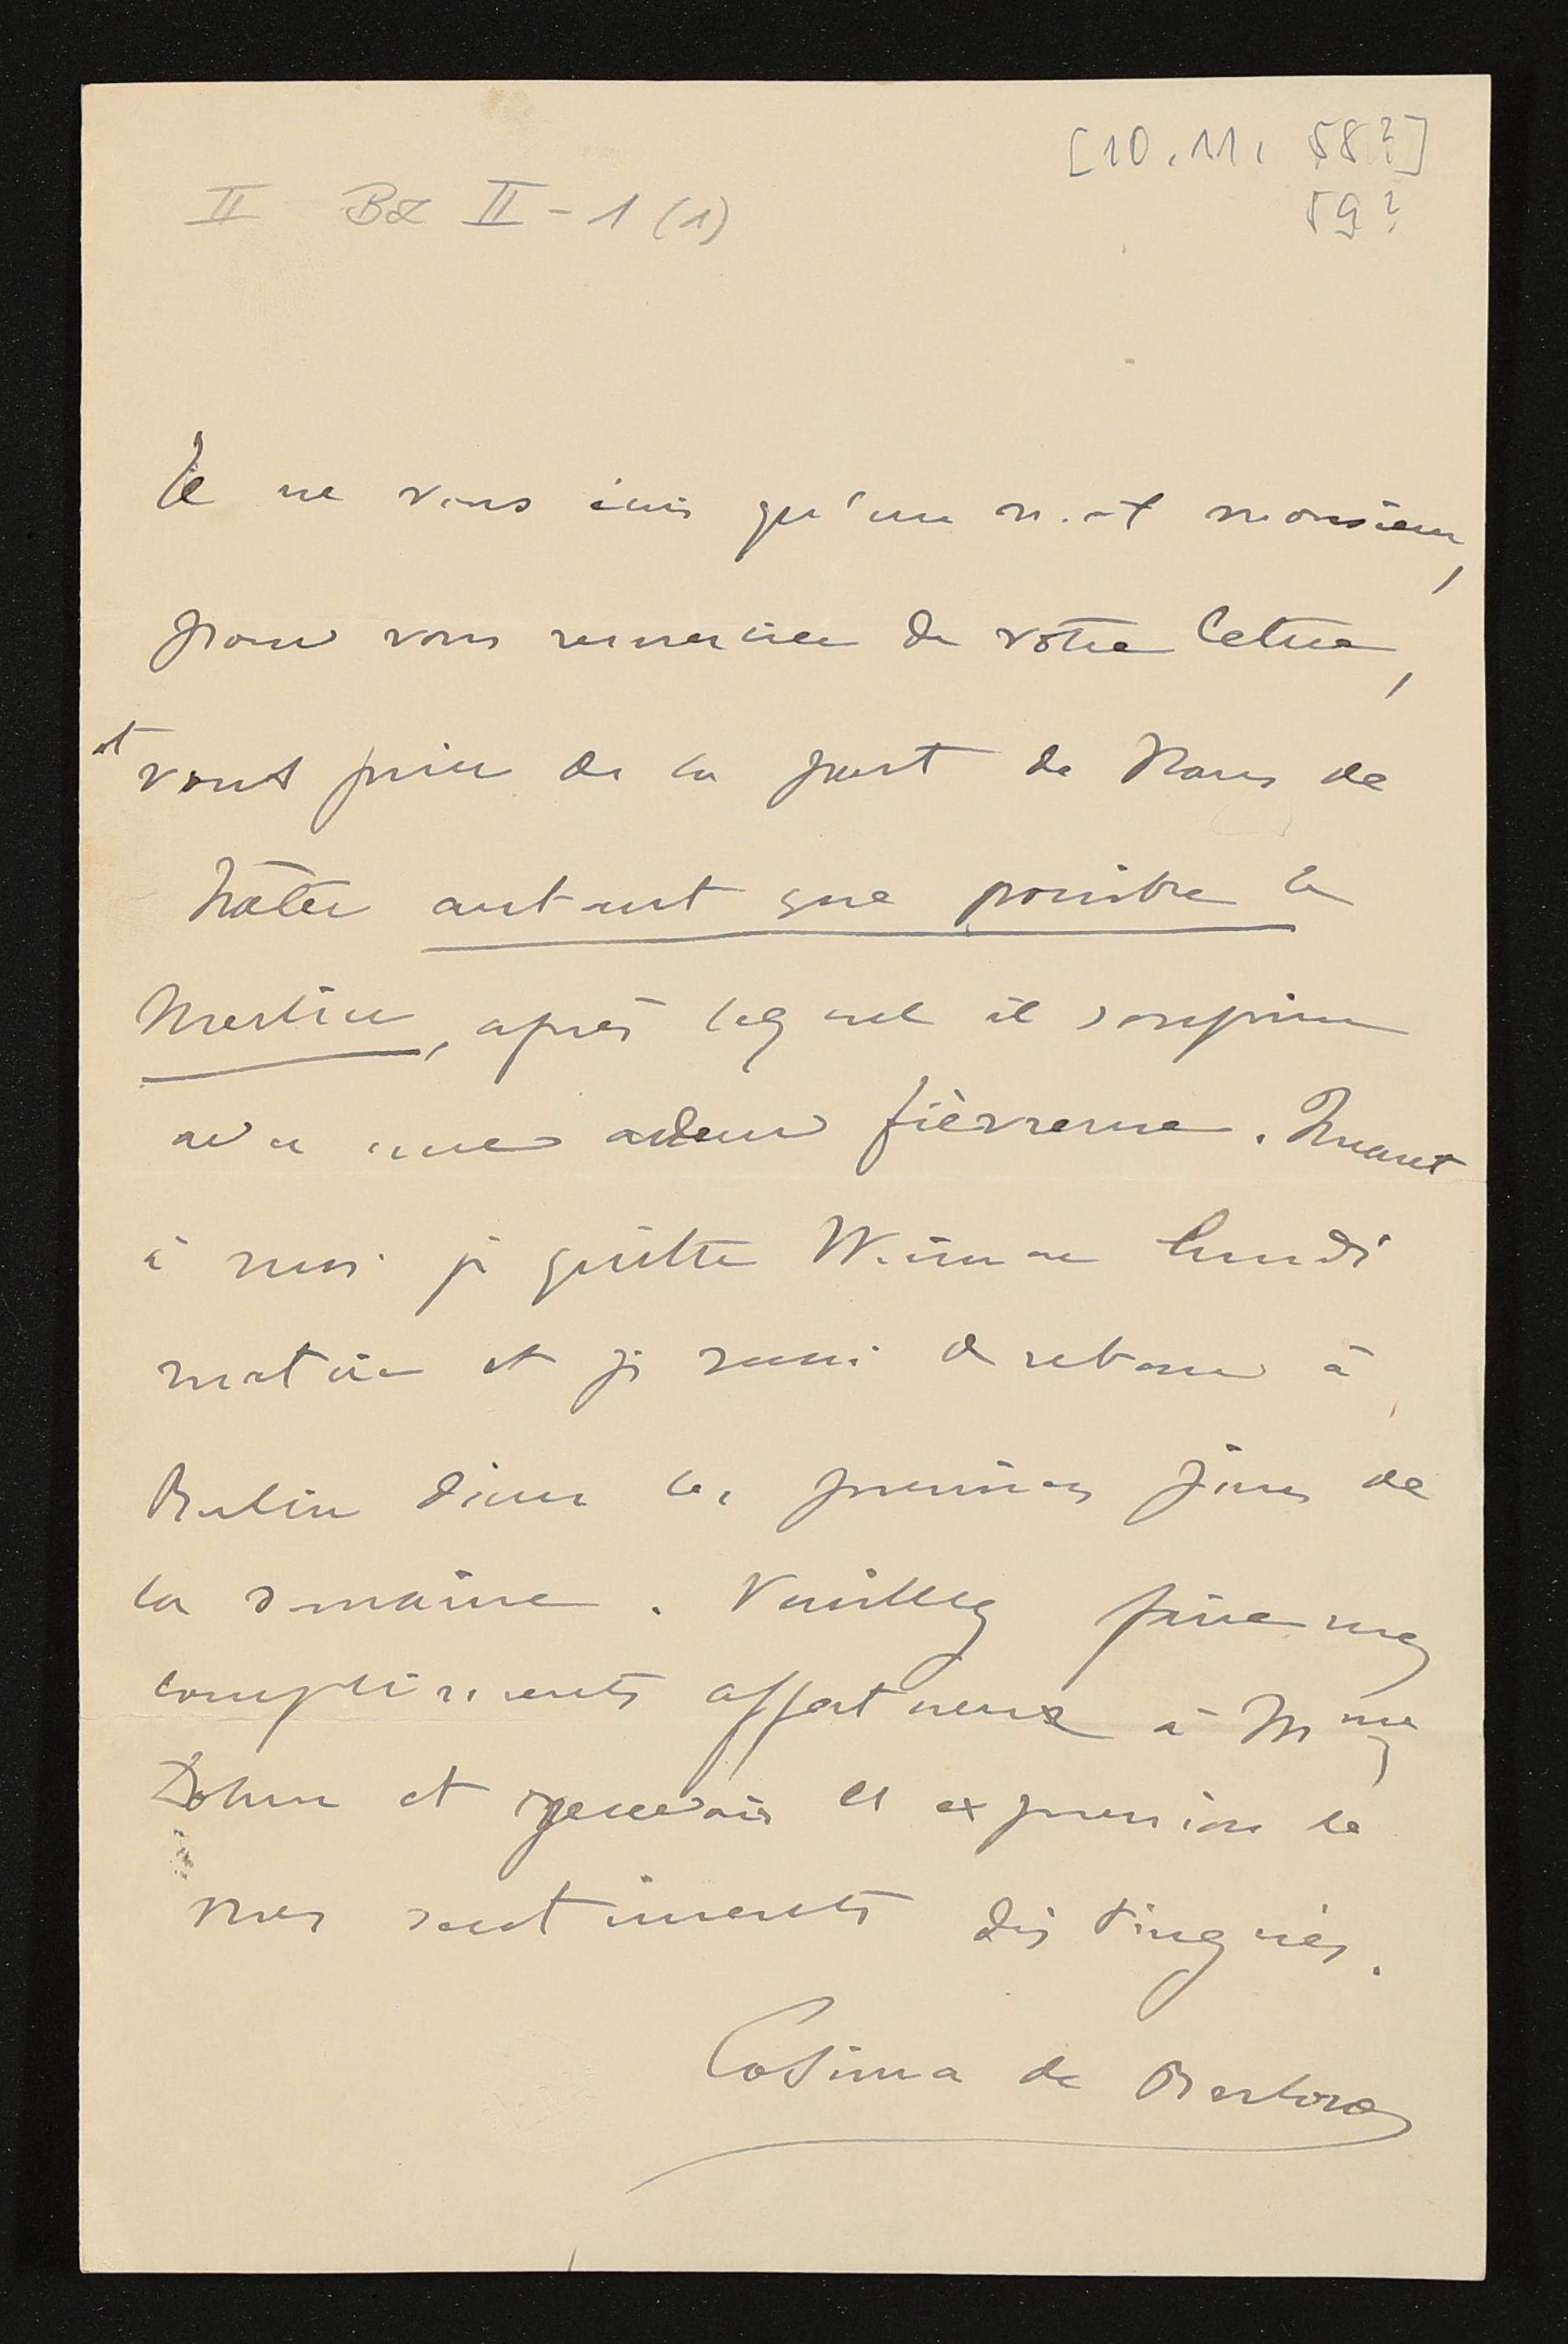 [10.11. 58?]
59?
II BZ II-1(1)
Je ne vous écris qu'un mot monsieur,
pour vous remercier de votre lettre,
et vous prier de la part de Hans de
hâter autant que possible le
Merlin, après lequel il soupire
avec une ardeur fièvreuse. Quant
à moi je quitte Weimar lundi
matin et je serai de retour à
Berlin dans les premiers jours de
la semaine. Veuillez faire mes
compliments affectueux à Mme
Dohm et recevoir l'expression de
mes sentiments distingués.
Cosima de Bulow